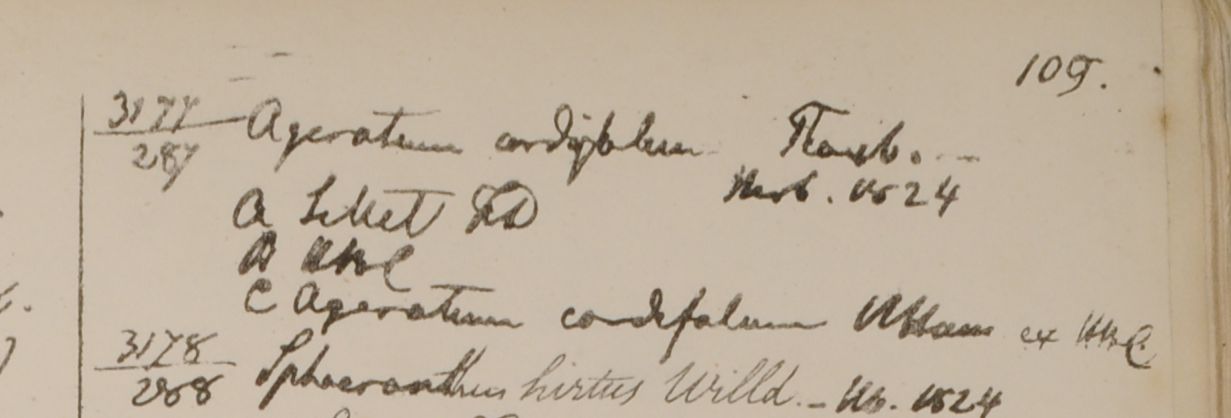 109.
3177 Ageratum cordifolium Roxb. -
287 Herb. 1824
A Sillet FD
B HBC
C Ageratum cordifolium Assam ex HBC
3178
288 Sphaeranthus hirtus Willd. - Hb. 1824